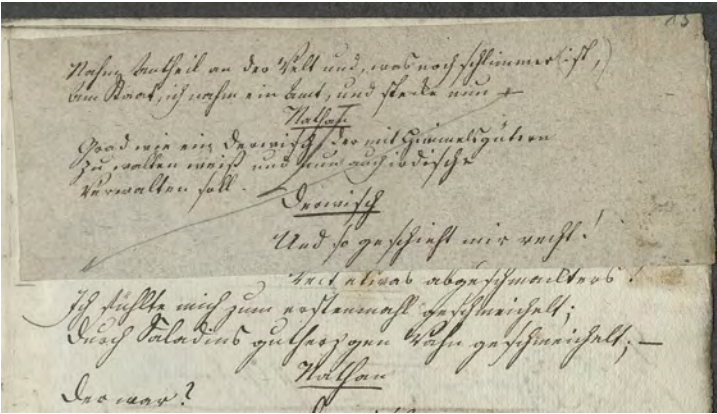 15
Nahm Antheil an der Welt und, was noch schlimmer ist,)
Am Staat, ich nahm ein Amt, und stecke nun
Nathan
Grad wie ein Derwisch, der mit Himmelsgütern
Zu walten weiß und nun auch irdische
Verwalten soll.
Derwisch
Und so geschieht mir recht!
Weit etwas abgeschmackters!
Ich fühlte mich zum erstenmahl geschmeichelt;
Durch Saladins gutherzgen Wahn geschmeichelt; —
Nathan
Der war?